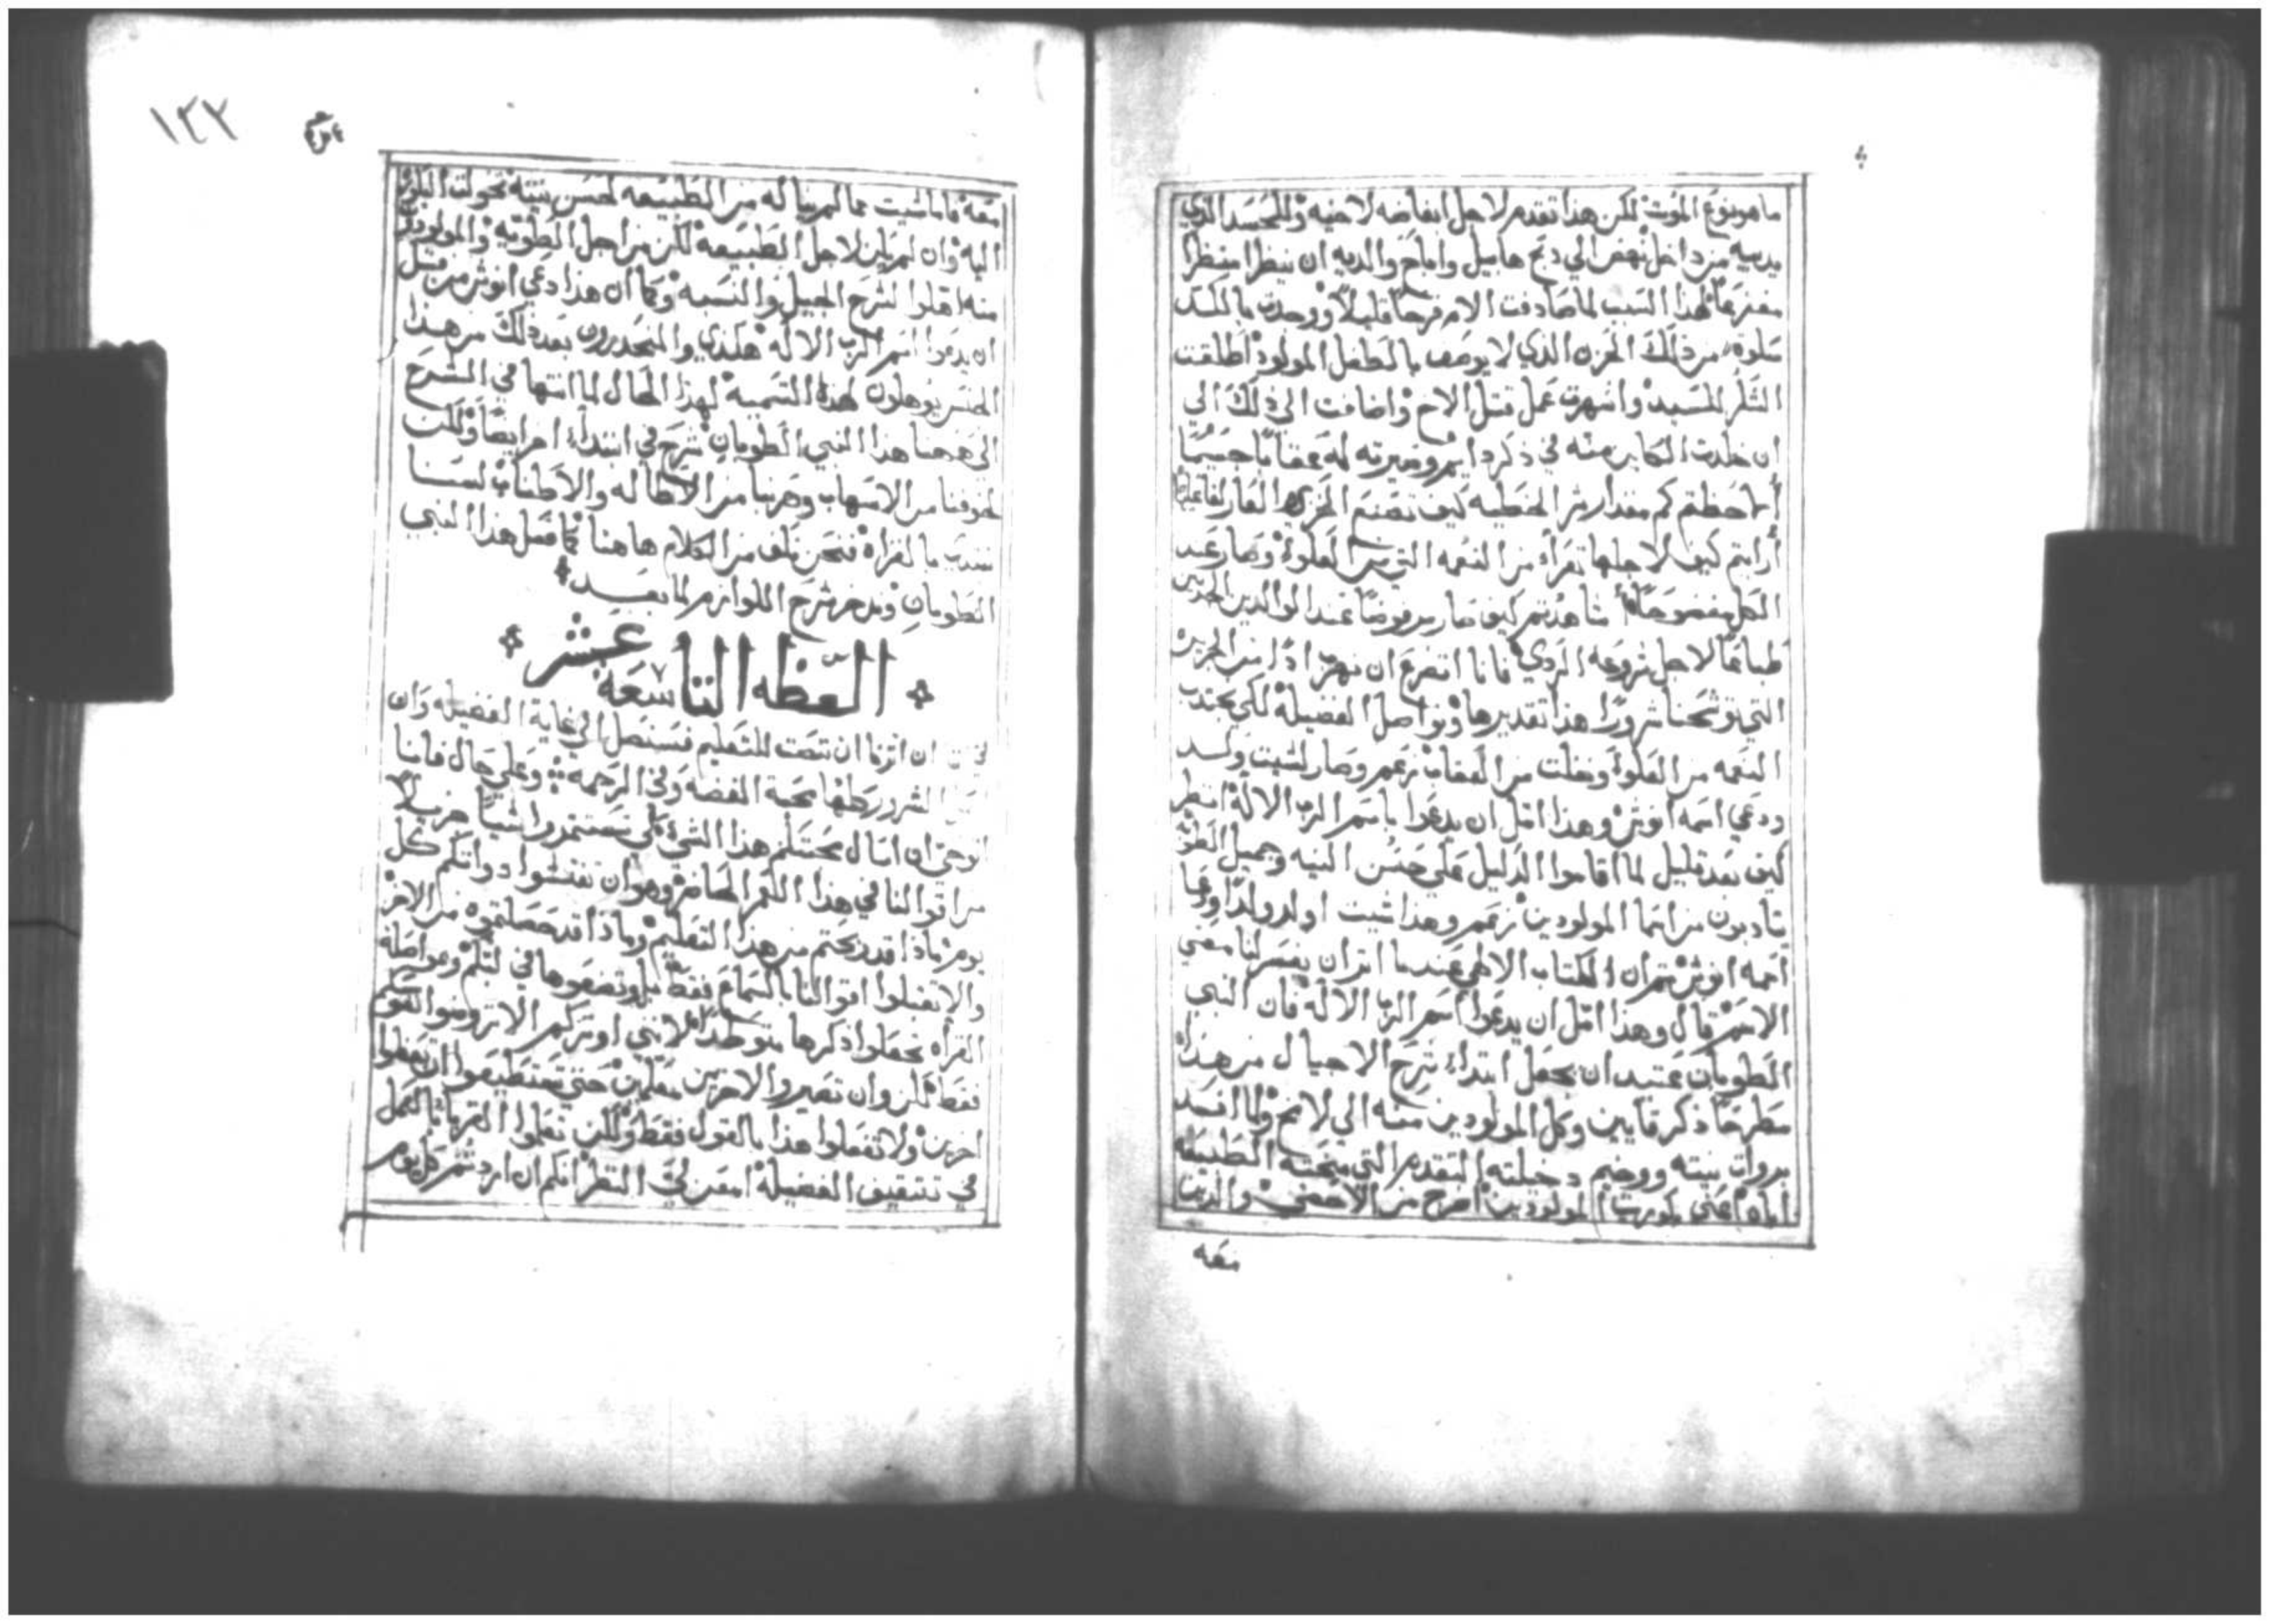 ما هو نوع الموت لكن هذا تقدم لاجل ابغاضه لاخيه وللحسد الذي
من داخل نهض الي دبح هابيل واباح والديه ان ينظرا منظرا
لهذا السبب لما صادفت الام فرحا قليلا ووجدت بالكد
سلوة من ذلك الحزن الذي لا يوصف بالطفل المولود اطلقت
الشكر للسيد واشهرت عمل قتل الاخ واضافت الي ذلك الي
ان خلدت منه في ذكر دايم وصيرته له عقابا جسيما
ألاحظتم كم مقدار شر الخطيه كيف تصنع الخزي العار لفاعليها
أرايتم كيف لاجلها تعرأ من النعمه التي من العلوة وصار عند
الكل مفضوحا أشاهدتم كيف صار مرفوضا عند الوالدين
طباعا لاجل شروعه الردي فانا اتضرع ان نهرب اذا من الجريره
التي توشحنا شرورا هذا تقديرها ونواصل الفضيلة لكي نجتدب
النعمه من العلوة ونفلت من العقاب زعم وصار لشيت ولد
ودعي اسمه انوش وهذا امل ان يدعوا باسم الرب الاله انظر
كيف بعد قليل لما اقاموا الدليل علي حسن النيه وجميل الطوية
يتادبون من اسما المولودين زعم وهذا شيت اولد ولدا ودعا
اسمه انوش ثم ان الكتاب الالهي عندما اتر ان يفسر لنا معني
الاسم قال وهذا امل ان يدعوا اسم الرب الاله فان النبي
الطوبان عتيد ان يجعل ابتداء شرح الاجيال من هذا
مطرحا ذكر قايين وكل المولودين منه الي لامخ ولما افسد
نيته ووضيع دخيلته التقدم التي منحته الطبيعة
اياه اعني بكوريت المولودين اطرح من الاحصي والدين
معه
١٢٢
معه فاما شيت مما لم يناله من الطبيعه لحسن نيته تحولت البكورية
اليه وان لم يكن لاجل الطبيعه لكن من اجل الطوية والمولودون
منه اهلوا لشرح الجيل والنسبه وكما ان هذا دعي انوش من قبل
ان يدعوا اسم الرب الاله هكدي والمنحدرون بعد ذلك من هذا
الجنس يوهلون لهذه التسمية لهذا الحال لما انتها في الشرح
الي ههنا هذا النبي الطوبان شرح في ابتداء اخر ايضا ولكن
لخوفنا من الاسهاب وهربنا من الاطاله والاطناب لسنا
بالقراه فنحن نكف من الكلام هاهنا كما فعل هذا النبي
الطوبان وندخر شرح اللوازم لما بعد
العظه التاسعة عشر
ان اترنا ان ننصت للتعليم فسنصل الي غاية الفضيله وان
الشرور كلها محبة الفضه وفي الرحمه وعلي حال فاننا
نوحي ان امثال محبتكم هذا الشي لكي تستثمروا شيا جزيلا
من اقوالنا في هذا الكم الحاضر وهو ان تفتشوا دواتكم كل
يوم ماذا قد ربحتم من هذا التعليم وماذا قد حصلتموه من الاخر
والا تقبلوا اقوالنا بالسماع فقط بل وتضعوها في لبكم ومواصلة
القراه تجعلوا ذكرها متوطدا لانني اوثركم الا تروضوا نفوسكم
فقط لكن وان تصيروا الاخرين معلمين حتي تستطيعوا ان تعظوا
اخرين ولا تفعلوا هذا بالقول فقط ولكن تعلموا القربا بالعمل
في تثقيف الفضيلة امعن لي النظر انكم ان اردتم كل يوم